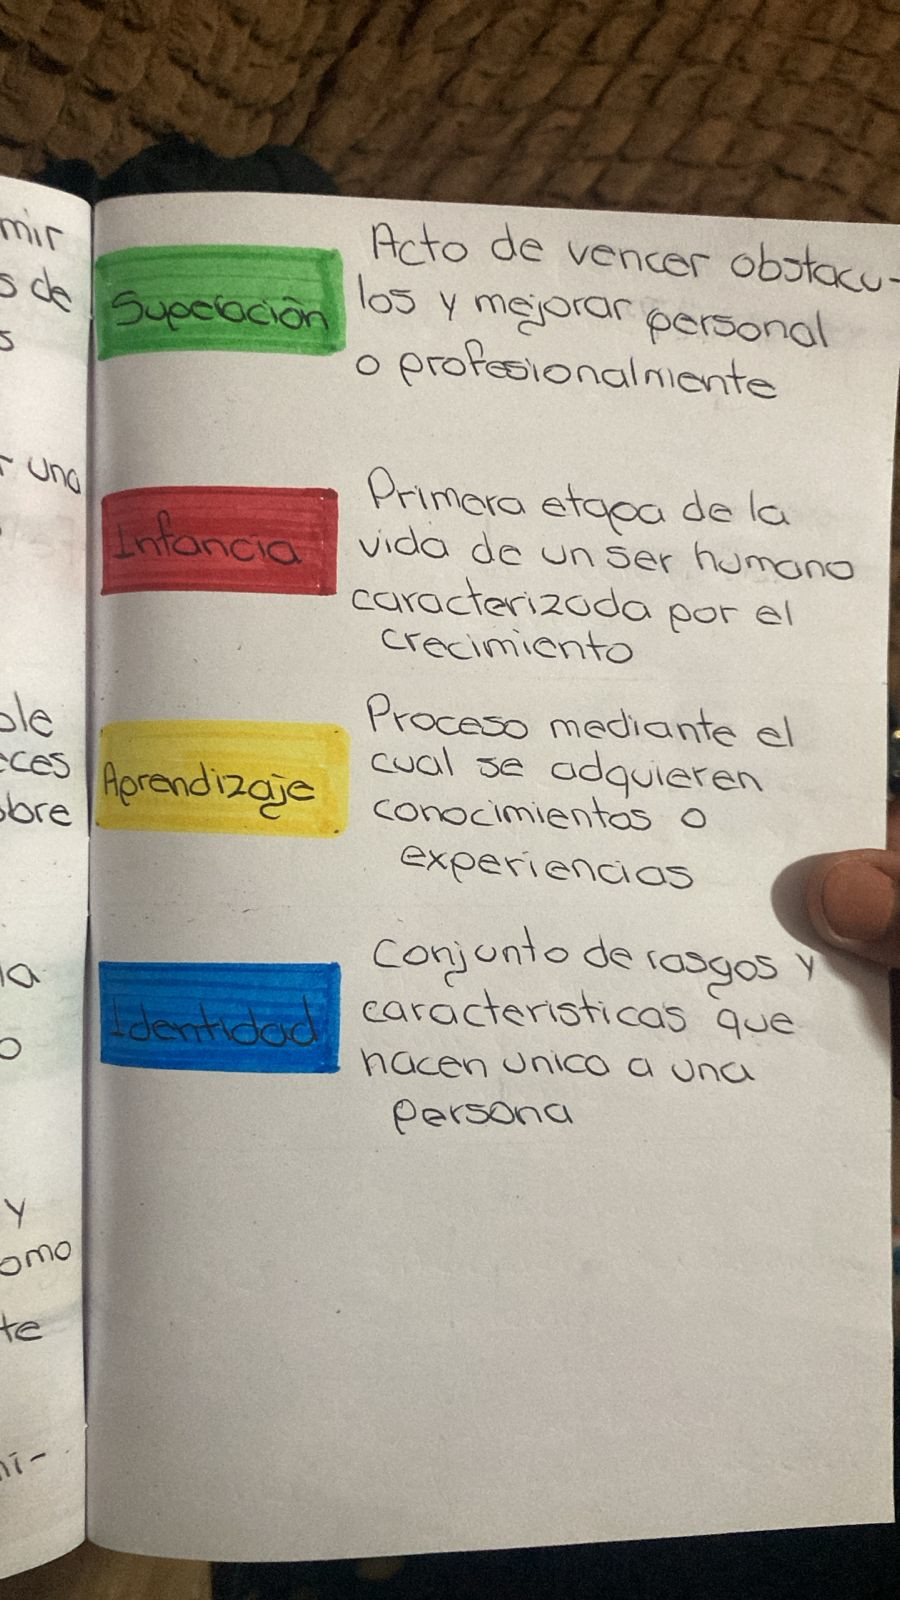 mir
s de
s
r una
ole
eces
obre
la
o
y
omo
te
ni-
Superación
Acto de vencer obstacu-
los y mejorar personal
o profesionalmente
Infancia
Primera etapa de la
vida de un ser humano
caracterizada por el
crecimiento
Aprendizaje
Proceso mediante el
cual se adquieren
conocimientos o
experiencias
Identidad
Conjunto de rasgos y
caracteristicas que
hacen unico a una
persona